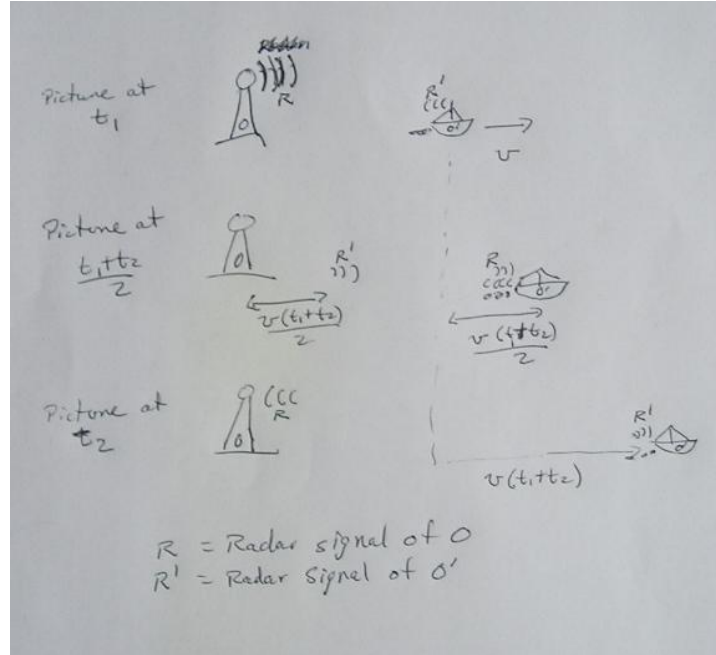 R
Picture at
t₁
O
R'
(((
O'
v
Picture at
t₁+t₂
2
O
R'
)))
v(t₁+t₂)
2
R)))
((((
O'
v(t₁+t₂)
2
Picture at
t₂
O
(((
R
R'
)))
O'
v(t₁+t₂)
R = Radar signal of O
R' = Radar Signal of O'